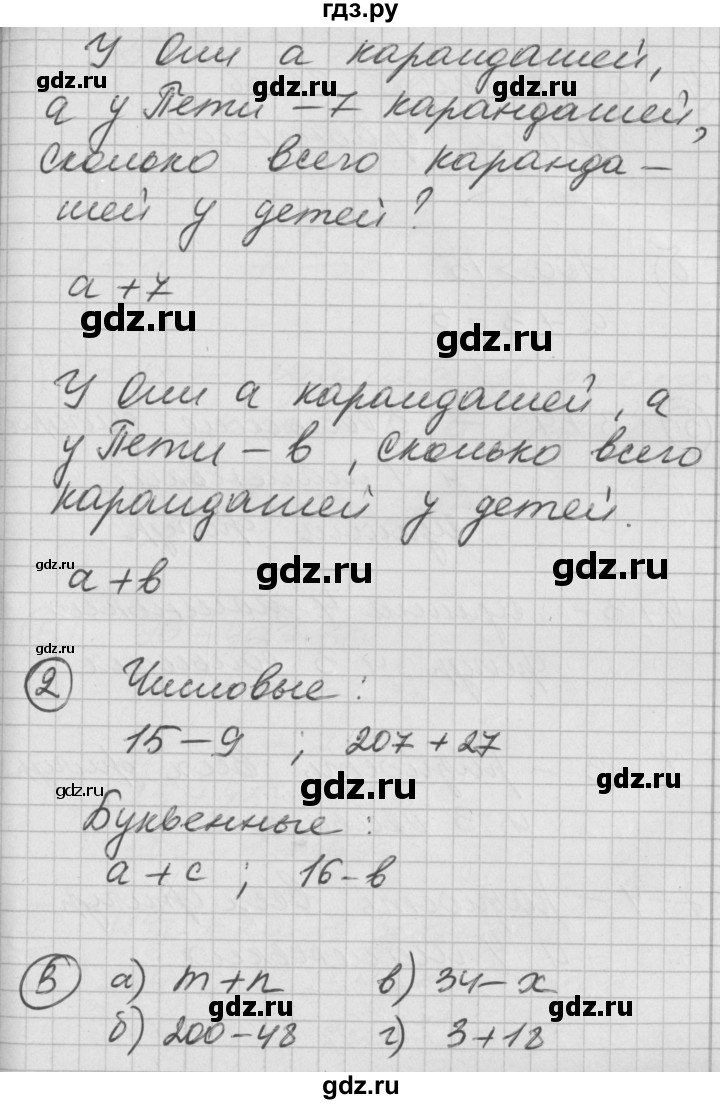 гдз.ру
У Оли а карандашей,
а у Пети – 7 карандашей,
сколько всего каранда –
шей у детей?
а + 7
У Оли а карандашей, а
у Пети – в, сколько всего
карандашей у детей.
а + в
2 Числовые:
15 – 9 ; 207 + 27
Буквенные:
а + с ; 16 – в
5 а) m + n в) 34 – x
б) 200 – 48 г) 3 + 18
gdz.ru
gdz.ru
gdz.ru
gdz.ru
gdz.ru
gdz.ru
gdz.ru
gdz.ru
gdz.ru
gdz.ru
gdz.ru
gdz.ru
gdz.ru
gdz.ru